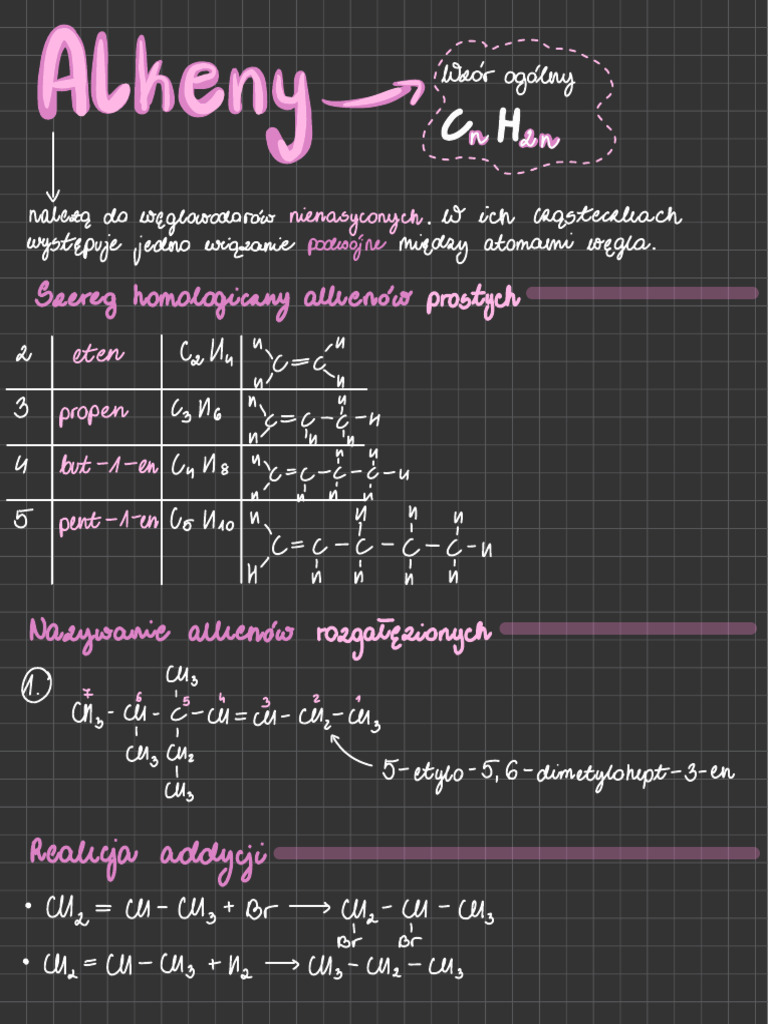 Alkeny
Wzór ogólny
CnH2n
należą do węglowodorów nienasyconych. W ich cząsteczkach
występuje jedno wiązanie podwójne między atomami węgla.
Szereg homologiczny alkenów prostych
2 eten C2H4
H H
C=C
H H
3 propen C3H6
H H
C=C-C-H
H H H
4 but-1-en C4H8
H H H
C=C-C-C-H
H H H H
5 pent-1-en C5H10
H H H H
C=C-C-C-C-H
H H H H H
Nazywanie alkenów rozgałęzionych
CH3
1. 7 6 5 4 3 2 1
CH3-CH-C-CH=CH-CH2-CH3
CH3 CH2
CH3
5-etylo-5,6-dimetylohept-3-en
Reakcja addycji
• CH2=CH-CH3+Br → CH2-CH-CH3
Br Br
• CH2=CH-CH3+H2 → CH3-CH2-CH3